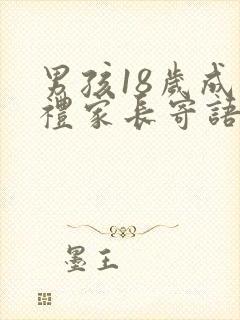 男孩18歲成
禮家長寄語
墨王